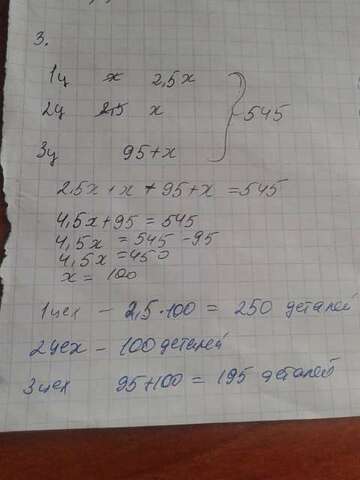 3.
1ц x 2,5x
2ц 2,5 x } 545
3ц 95+x
2,5x + x + 95+x = 545
4,5x+95 = 545
4,5x = 545 -95
4,5x =450
x = 100
1цех - 2,5·100 = 250 деталей
2цех - 100 деталей
3цех 95+100 = 195 деталей